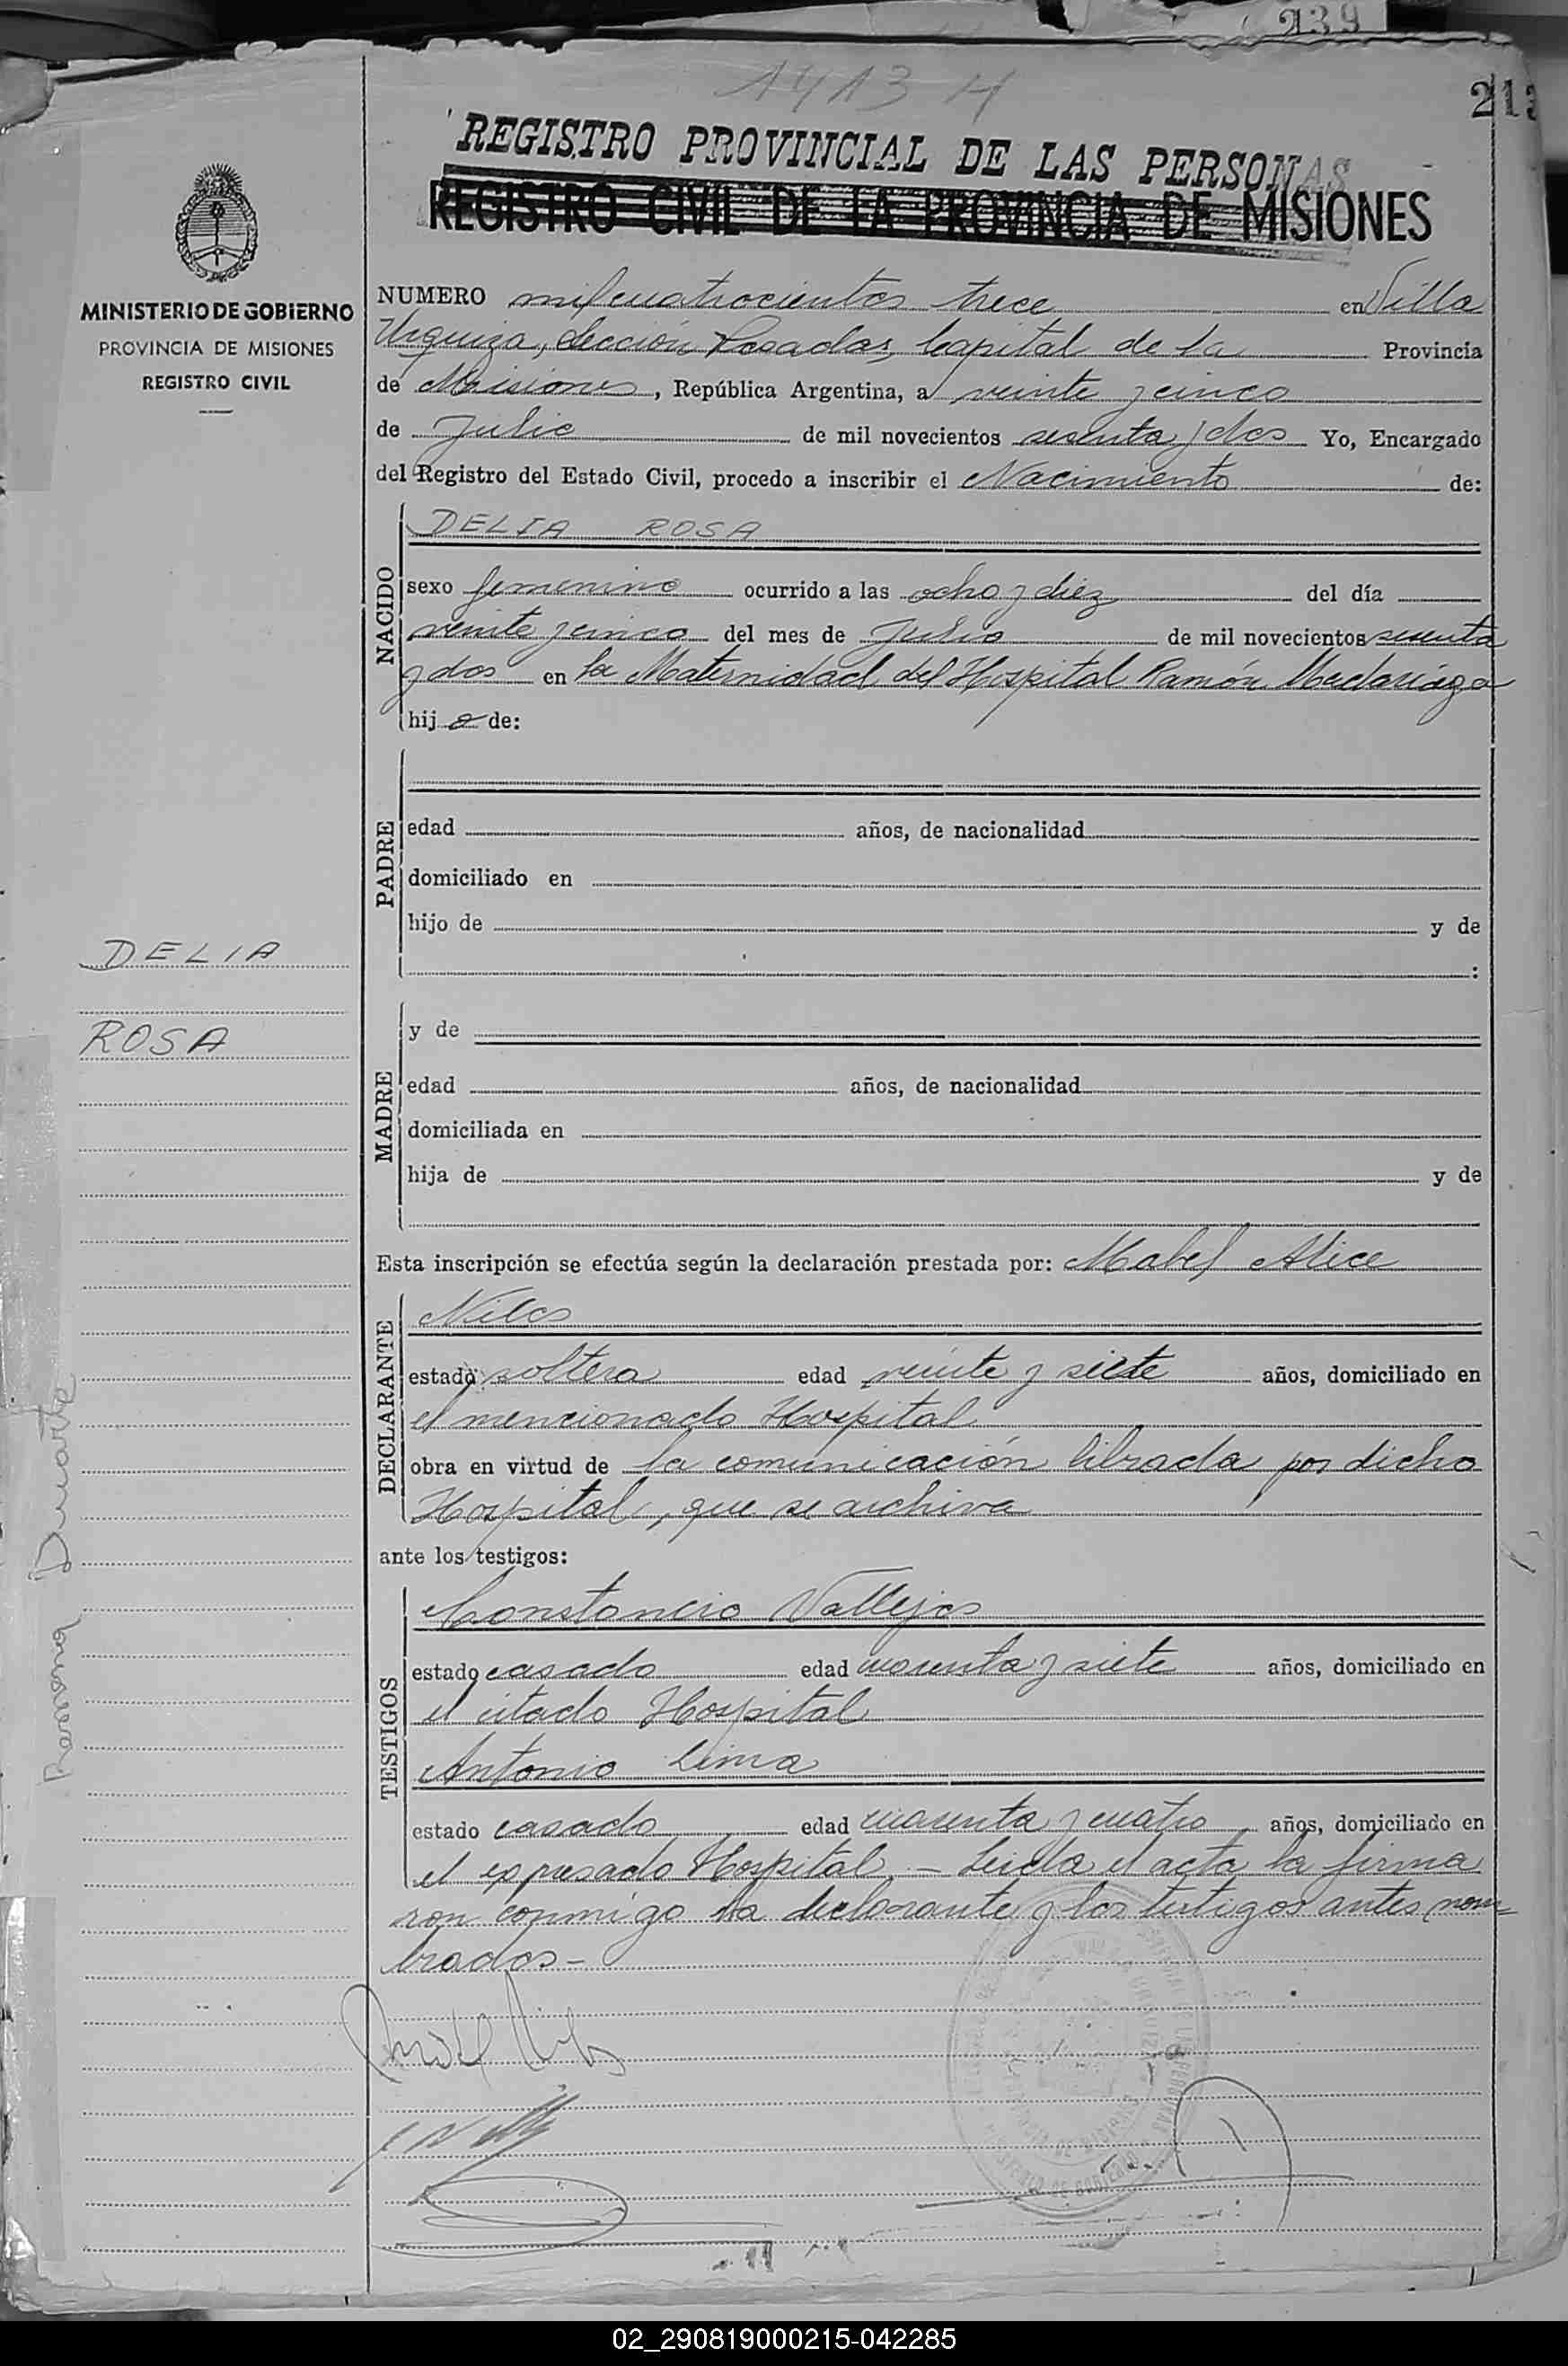 239
1413 H
213
REGISTRO PROVINCIAL DE LAS PERSONAS
REGISTRO CIVIL DE LA PROVINCIA DE MISIONES
MINISTERIO DE GOBIERNO
PROVINCIA DE MISIONES
REGISTRO CIVIL
NUMERO mil cuatrocientos trece en Villa
Urquiza, Sección Posadas, Capital de la Provincia
de Misiones, República Argentina, a veinte y cinco
de Julio de mil novecientos sesenta y dos Yo, Encargado
del Registro del Estado Civil, procedo a inscribir el Nacimiento de:
NACIDO
DELIA ROSA
sexo femenino ocurrido a las ocho y diez del día
veinte y cinco del mes de Julio de mil novecientos sesenta
y dos en la Maternidad del Hospital Ramón Madariaga
hij a de:
PADRE
edad años, de nacionalidad
domiciliado en
hijo de y de
:
DELIA
ROSA
MADRE
y de
edad años, de nacionalidad
domiciliada en
hija de y de
Esta inscripción se efectúa según la declaración prestada por: Mabel Alice
DECLARANTE
Niles
estado soltera edad veinte y siete años, domiciliado en
el mencionado Hospital
obra en virtud de la comunicación librada por dicho
Hospital, que se archiva
ante los testigos:
Ramona Duarte
TESTIGOS
Constancio Vallejos
estado casado edad cuarenta y siete años, domiciliado en
el citado Hospital
Antonio Lima
estado casado edad cuarenta y cuatro años, domiciliado en
el expresado Hospital. - Leida el acta la firma
ron conmigo la declarante y los testigos antes nom=
brados-
02_290819000215-042285